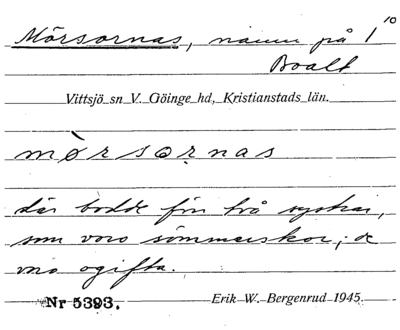 Mörsornas, namn på 1
10
Boalt
Vittsjö sn V. Göinge hd, Kristianstads län.
mørsoṛnas
där bodde förr två systrar,
som voro sömmerskor; de
voro ogifta.
Nr 5393. Erik W. Bergenrud 1945.